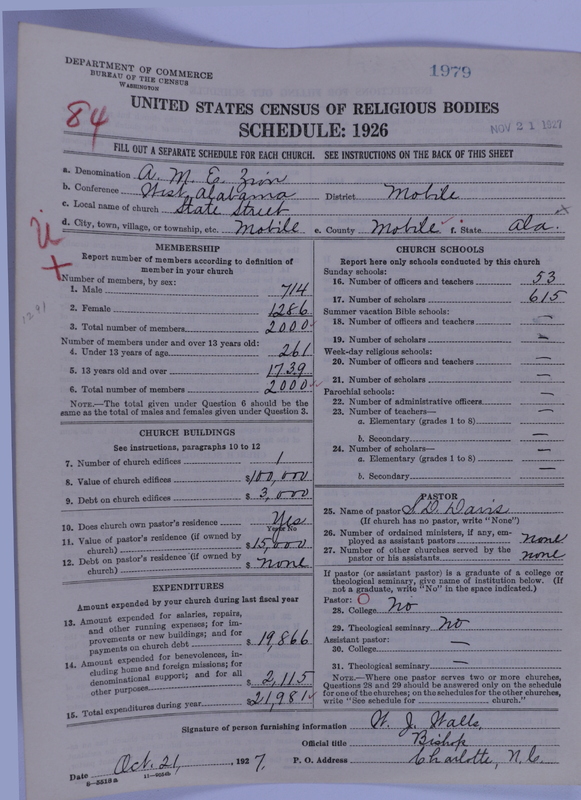 DEPARTMENT OF COMMERCE
BUREAU OF THE CENSUS
WASHINGTON
1979
84
UNITED STATES CENSUS OF RELIGIOUS BODIES
SCHEDULE: 1926
NOV 21 1927
FILL OUT A SEPARATE SCHEDULE FOR EACH CHURCH. SEE INSTRUCTIONS ON THE BACK OF THIS SHEET
a. Denomination A. M. E. Zion
b. Conference West Alabama District Mobile
c. Local name of church State Street
d. City, town, village, or township, etc. Mobile e. County Mobile f. State Ala.
1291
MEMBERSHIP
Report number of members according to definition of
member in your church
Number of members, by sex:
1. Male 714
2. Female 1286
3. Total number of members 2000
Number of members under and over 13 years old:
4. Under 13 years of age 261
5. 13 years old and over 1739
6. Total number of members 2000
NOTE.—The total given under Question 6 should be the
same as the total of males and females given under Question 3.
CHURCH BUILDINGS
See instructions, paragraphs 10 to 12
7. Number of church edifices 1
8. Value of church edifices $100,000
9. Debt on church edifices $3,000
10. Does church own pastor's residence Yes
Yes or No
11. Value of pastor's residence (if owned by
church) $15,000
12. Debt on pastor's residence (if owned by
church) $none
EXPENDITURES
Amount expended by your church during last fiscal year
13. Amount expended for salaries, repairs,
and other running expenses; for im-
provements or new buildings; and for
payments on church debt $19,866
14. Amount expended for benevolences, in-
cluding home and foreign missions; for
denominational support; and for all
other purposes $2,115
15. Total expenditures during year $21,981
CHURCH SCHOOLS
Report here only schools conducted by this church
Sunday schools:
16. Number of officers and teachers 53
17. Number of scholars 615
Summer vacation Bible schools:
18. Number of officers and teachers —
19. Number of scholars —
Week-day religious schools:
20. Number of officers and teachers —
21. Number of scholars —
Parochial schools:
22. Number of administrative officers —
23. Number of teachers—
a. Elementary (grades 1 to 8) —
b. Secondary —
24. Number of scholars—
a. Elementary (grades 1 to 8) —
b. Secondary —
PASTOR
25. Name of pastor S. D. Davis
(If church has no pastor, write "None")
26. Number of ordained ministers, if any, em-
ployed as assistant pastors none
27. Number of other churches served by the
pastor or his assistants none
If pastor (or assistant pastor) is a graduate of a college or
theological seminary, give name of institution below. (If
not a graduate, write "No" in the space indicated.)
Pastor: O
28. College No
29. Theological seminary No
Assistant pastor:
30. College —
31. Theological seminary —
NOTE.—Where one pastor serves two or more churches,
Questions 28 and 29 should be answered only on the schedule
for one of the churches; on the schedules for the other churches,
write "See schedule for church."
Signature of person furnishing information W. J. Walls,
Official title Bishop
Date Oct. 21, 1927. P. O. Address Charlotte, N. C.